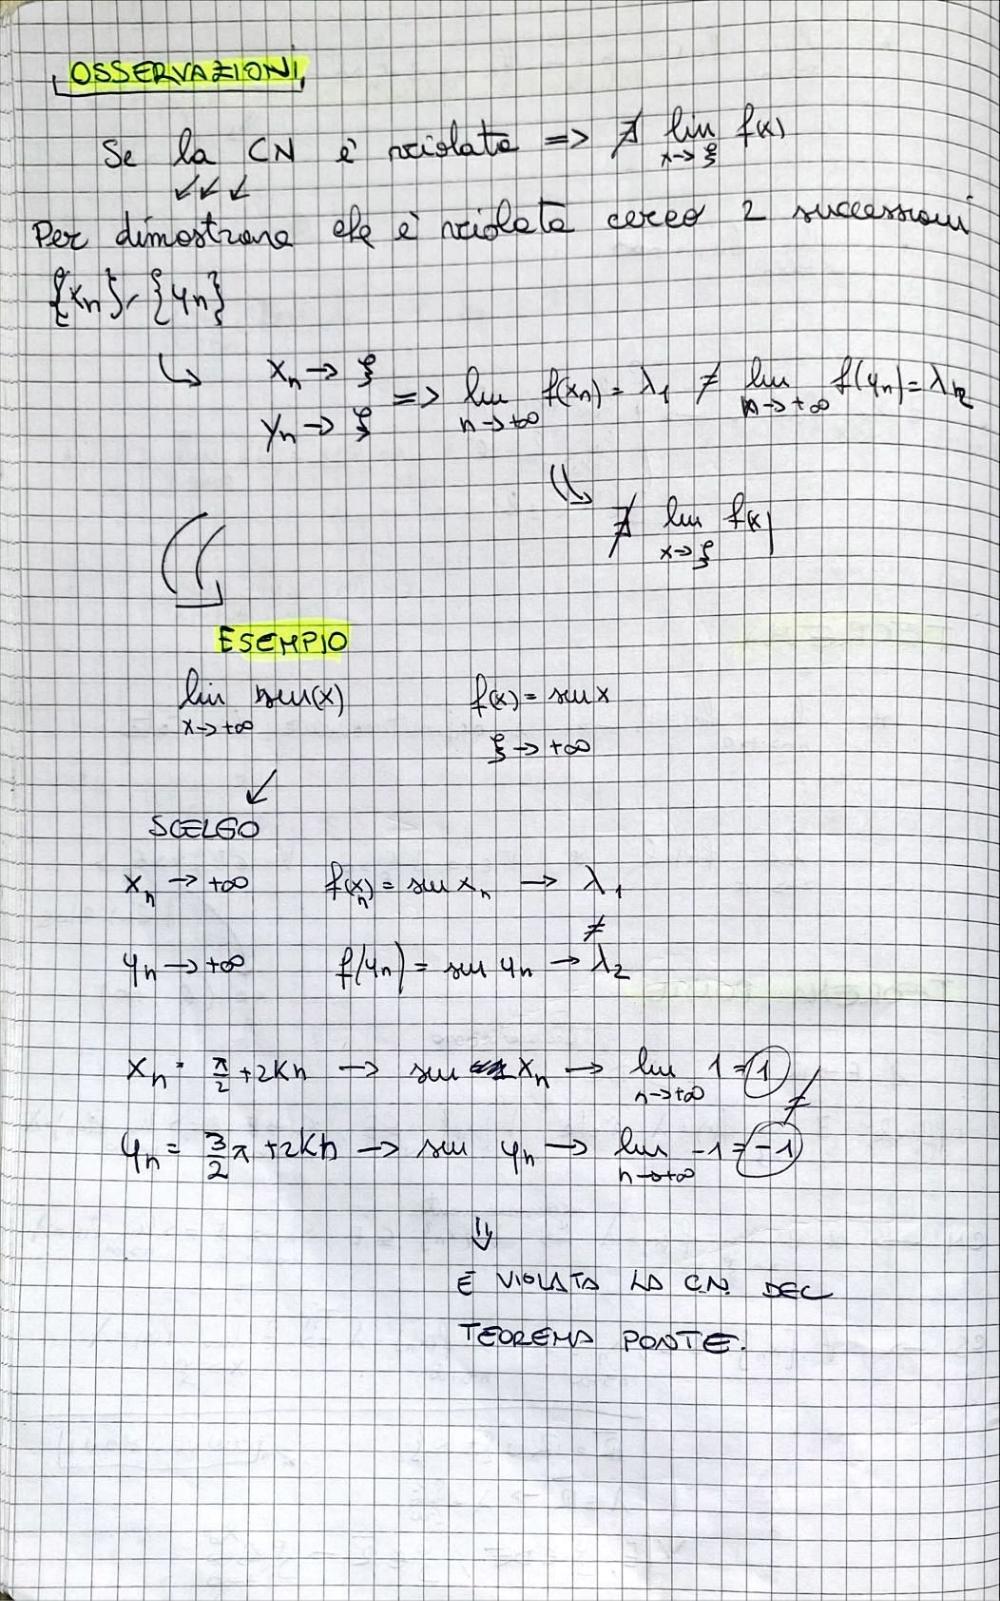 OSSERVAZIONI
Se la CN è violata => ∄ lim f(x)
x→ξ
↙↙↙
Per dimostrare che è violata cerco 2 successioni
{xn}, {yn}
↳ xn → ξ
yn → ξ
=> lim f(xn) = λ1 ≠ lim f(yn) = λ2
n→+∞ n→+∞
∄ lim f(x)
x→ξ
ESEMPIO
lim sen(x) f(x) = sen x
x→+∞ ξ → +∞
↙
SCELGO
xn → +∞ f(xn) = sen xn → λ1
≠
yn → +∞ f(yn) = sen yn → λ2
xn = π/2 + 2Kn → sen xn → lim 1 = 1
n→+∞
≠
yn = 3/2 π + 2Kn → sen yn → lim -1 = -1
n→+∞
⇓
È VIOLATA LA C.N. DEL
TEOREMA PONTE.